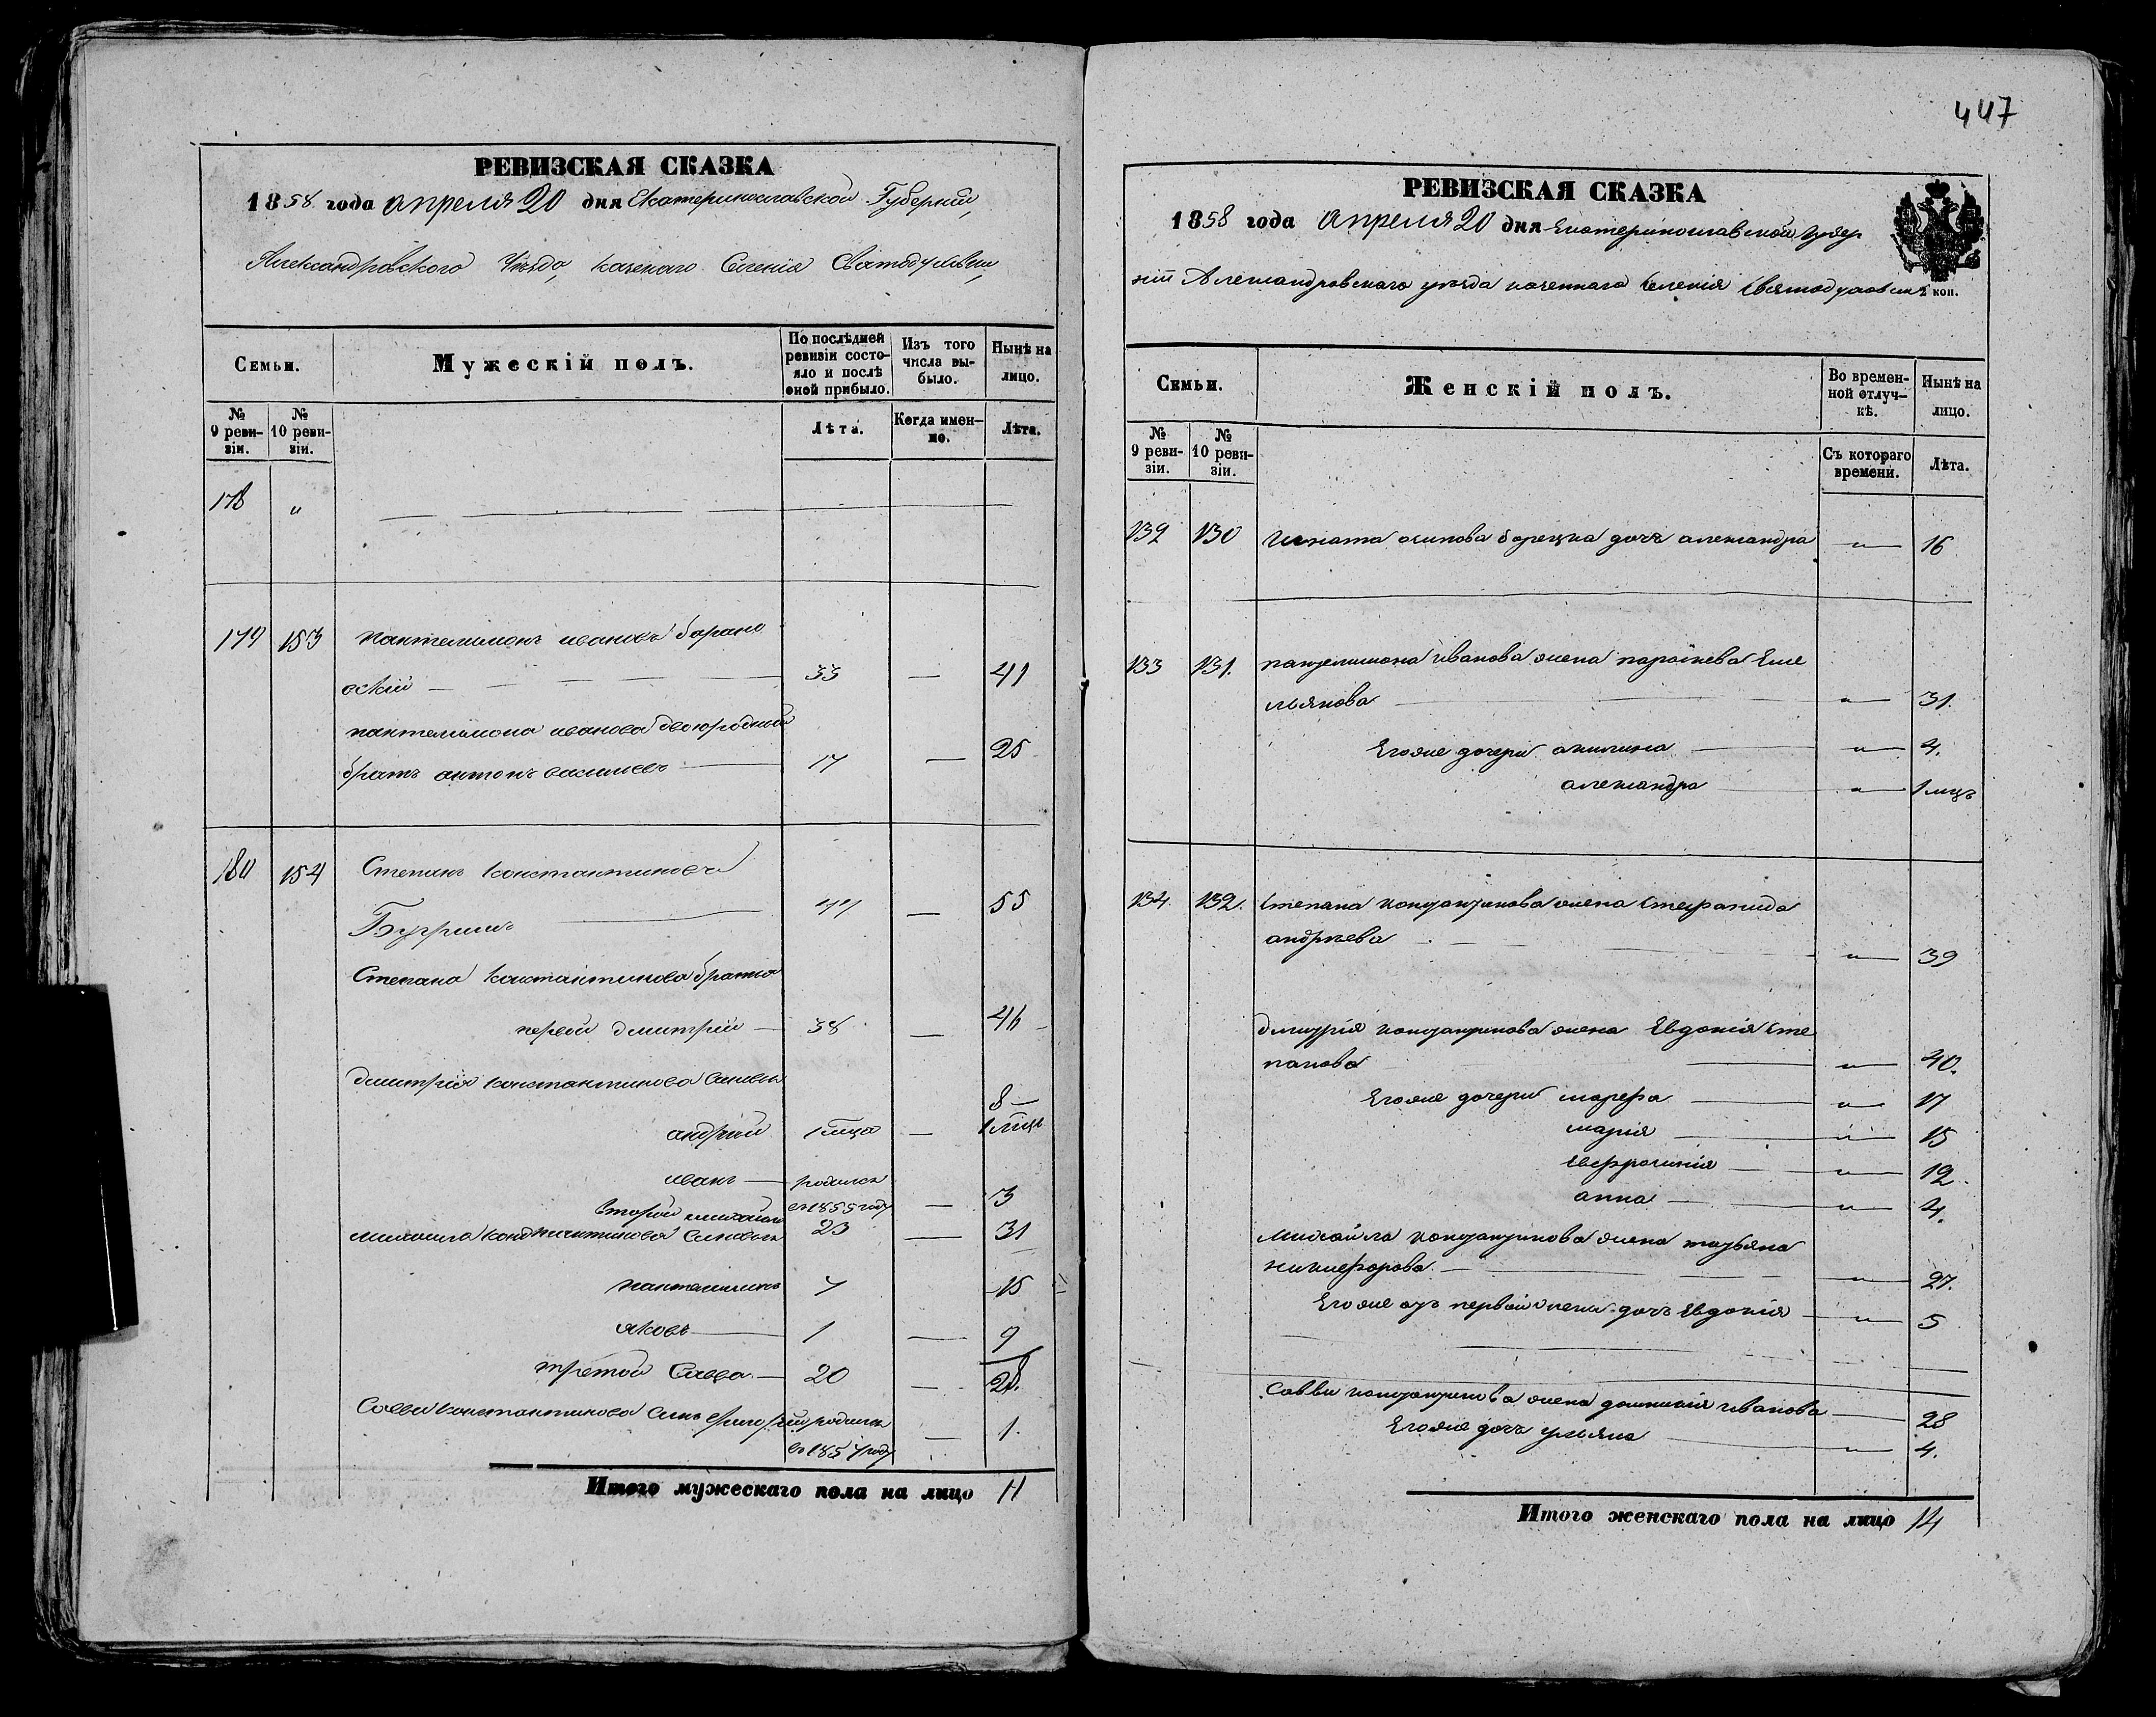 РЕВИЗСКАЯ СКАЗКА
1858 года апреля 20 дня Екатеринославской Губерніи,
Александровского Уезда, казенаго Селенія
Семьи. Мужескій полъ. По послѣдней ревизіи состояло и послѣ оной прибыло. Изъ того числа выбыло. Нынѣ на лицо.
№ 9 ревизіи. № 10 ревизіи. Лѣта. Когда именно. Лѣта.
178 "
179 153 Пантелимонъ ивановъ барано
вскій 33 — 41
пантелимона иванова двоюродный
братъ антонъ васильевъ 17 — 25
180 154 Степанъ Константиновъ
47 — 55
Степана Константинова братья
первой дмитрій — 38 — 46
дмитрія константинова Сыновья
8 —
андрій 1 мца — 1 мцъ
иванъ — родился
въ 1855 году — 3
второй михайло 23 — 31
михаила Константинова Сыновья
пантелимонъ 7 15
яковъ 1 — 9
третой Савва — 20 — 28.
Саввы константинова Сынъ григорій родился
въ 1857 году — 1.
Итого мужескаго пола на лицо 11
447
РЕВИЗСКАЯ СКАЗКА
1858 года апреля 20 дня Екатеринославской Губер
ніи Александровскаго уезда казеннаго Селенія
коп.
Семьи. Женскій полъ. Во временной отлучкѣ. Нынѣ на лицо.
№ 9 ревизіи. № 10 ревизіи. Съ котораго времени. Лѣта.
132 130 Игната осипова дочь александра — " — 16
133 131. пантелимона иванова жена парасіева Еме
льянова — " — 31.
Егоже дочери акилина — " — 4.
александра — " — 1 мцъ
134. 132. Степана константинова жена Стефанида
андреева — " — 39
дмитрія константинова жена Евдокія Сте
панова — " — 40.
Егоже дочери марфа — " — 17
марія — " — 15
Евфросинія — " — 12.
анна — " — 4.
михайла константинова жена татьяна
никифорова. — " — 27.
Егоже отъ первой жены дочь Евдокія — " — 5
Саввы константинова жена домникія иванова — 28
Егоже дочь ульяна — " — 4.
Итого женскаго пола на лицо 14